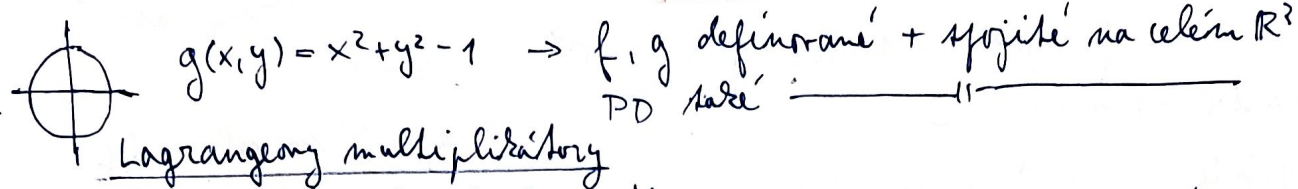 g(x,y) = x² + y² - 1 → f, g definované + spojité na celém ℝ²
PD také —————"—————
Lagrangeovy multiplikátory